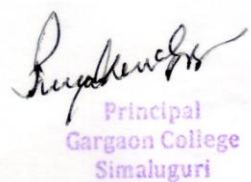 Principal
Gargaon College
Simaluguri